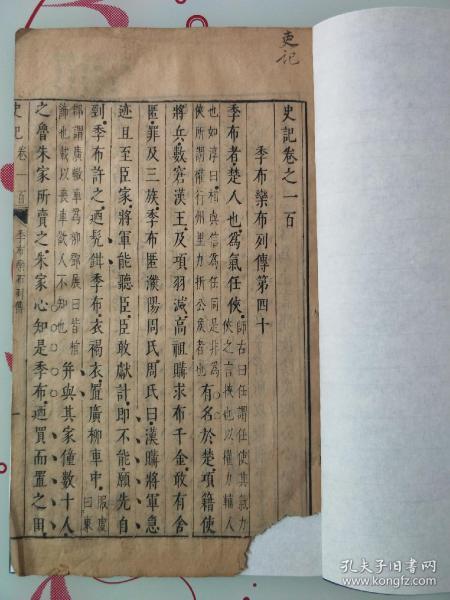 吏記
史記卷之一百
季布欒布列傳第四十
季布者楚人也爲氣任俠師古曰任謂任使其氣力俠之言挾也以權力輔人
也如淳曰相與信爲任同是非爲俠所謂權行州里力折公侯者也有名於楚項籍使
將兵數窘漢王及項羽滅高祖購求布千金敢有舍
匿罪及三族季布匿濮陽周氏周氏曰漢購將軍急
迹且至臣家將軍能聽臣臣敢獻計即不能願先自
剄季布許之迺髡鉗季布衣褐衣置廣柳車中服虔曰東
郡謂廣轍車爲柳鄧展曰皆棺飾也載以喪車欲人不知也并與其家僮數十人
之魯朱家所賣之朱家心知是季布迺買而置之田
史記卷一百
季布欒布列傳
孔夫子旧书网
www.kongfz.com